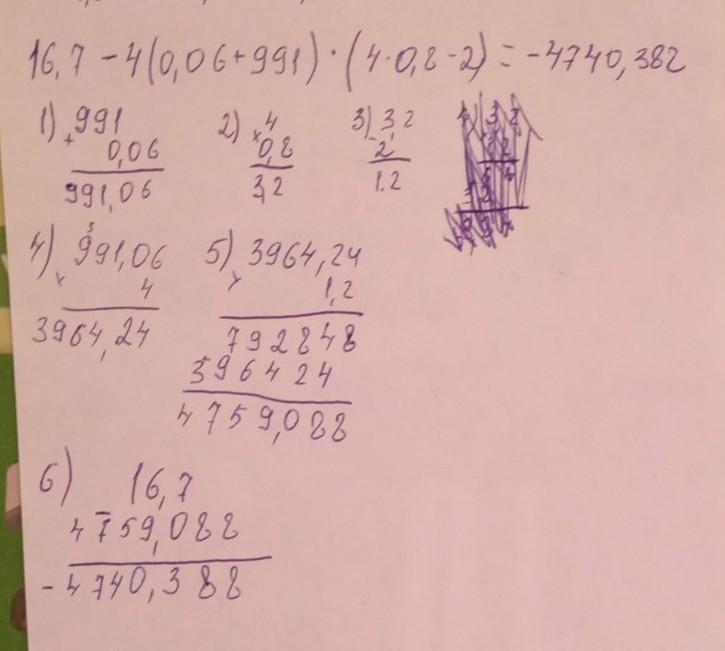 16,7 - 4(0,06+991) · (4·0,8-2) = -4740,388
1) 991
+ 0,06
991,06
2) × 4
0,8
3,2
3) - 3,2
2
1.2
4) × 991,06
3
4
3964,24
5) × 3964,24
1,2
792848
396424
4759,088
6) 16,7
- 4759,088
-4740,388